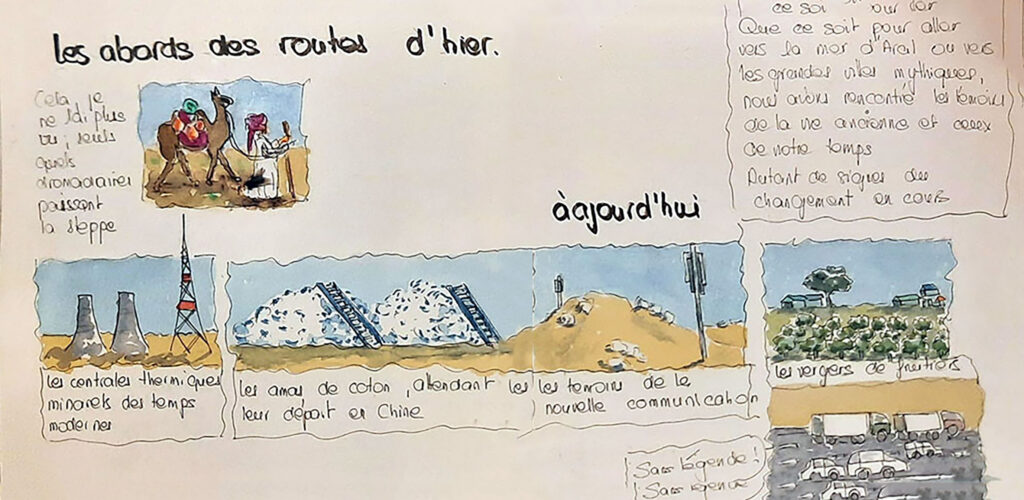 les abords des routes d'hier.
Cela je
ne l'ai plus
vu ; seuls
quels
dromadaires
paissent
la steppe
ce soit pour
Que ce soit pour aller
vers la mer d'Aral ou vers
les grandes villes mythiques,
nous avons rencontré les temoins
de la vie ancienne et ceux
de notre temps
Autant de signes du
changement en cours
àajourd'hui
les centrales thermiques
minarets des temps
modernes
les amas de coton, attendant les
leur départ en Chine
les temoins de la
nouvelle communication
les vergers de fruitiers
Sans légende !
Sans légende